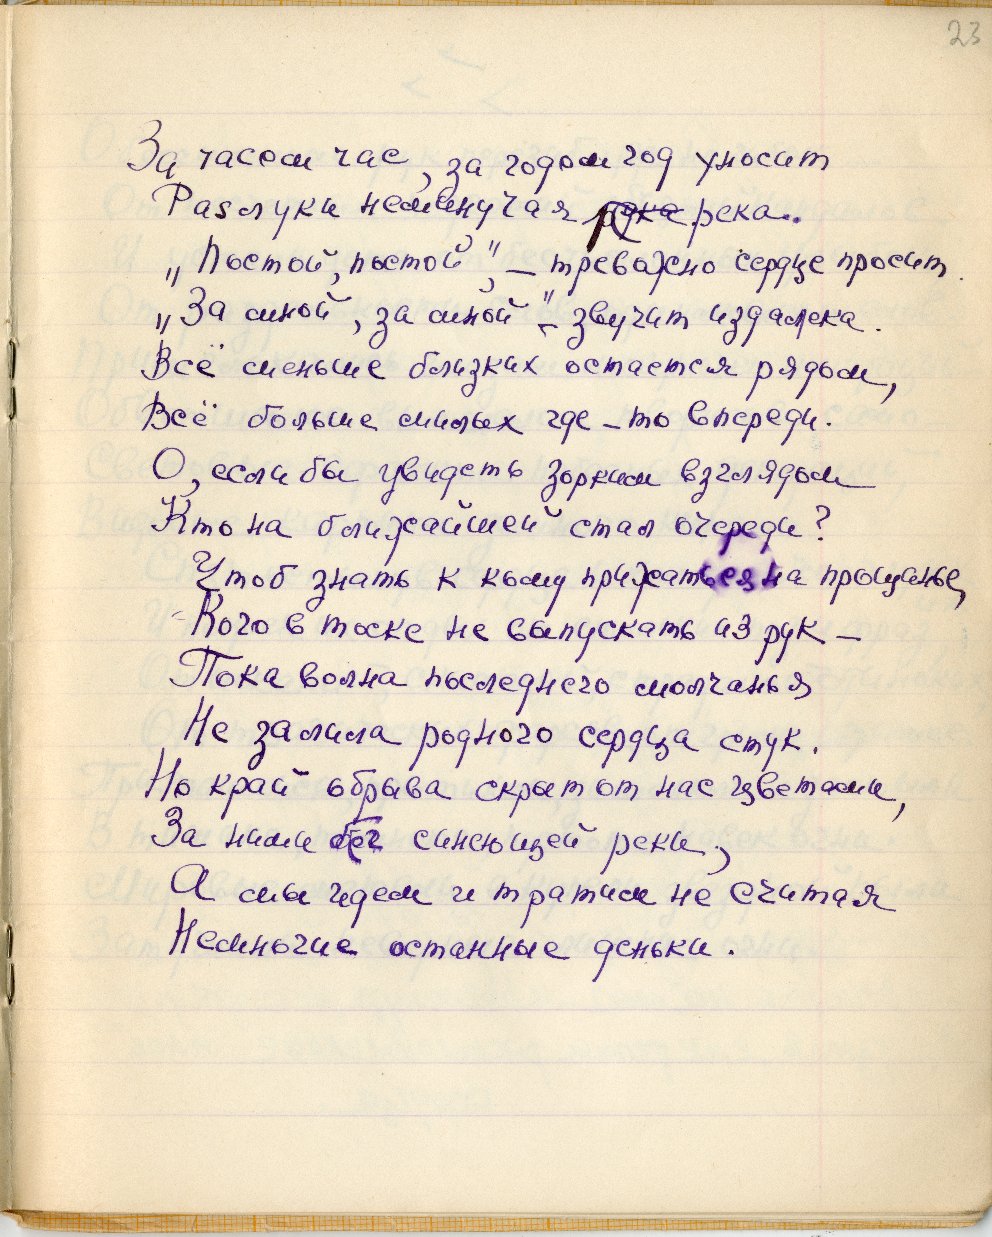 23
За часом час, за годом год уносит
Разлуки неминучая река.
„Постой, постой", – тревожно сердце просит.
„За мной, за мной" – звучит издалека.
Всё меньше близких остается рядом,
Всё больше милых где-то впереди.
О, если бы увидеть зорким взглядом
Кто на ближайшей стал очереди?
Чтоб знать к кому прижаться на прощанье,
Кого в тоске не выпускать из рук –
Пока волна последнего молчанья
Не залила родного сердца стук.
Но край обрыва скрыт от нас цветами,
За ними бег синеющей реки,
А мы идем и тратим не считая
Немногие останные деньки.